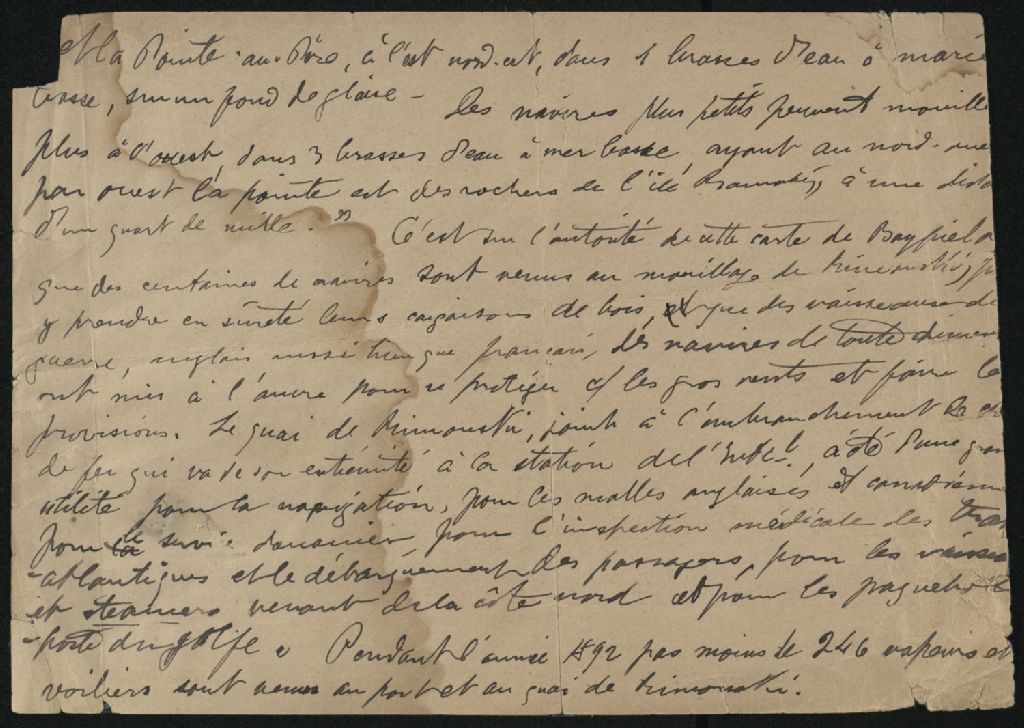 et la Pointe-au-Père, à l'est nord-est, dans 5 brasses d'eau à marée
basse, sur un fond de glaise - Des navires plus petits peuvent mouille
plus à l'ouest, dans 3 brasses d'eau à mer basse, ayant au nord-oue
par ouest la pointe est des rochers de l'ilé à une dista
d'un quart de mille. " C'est sur l'autorité de cette carte de Bayfield
que des centaines de navires sont venus au mouillage de Rimouski, p
y prendre en sûreté leurs cargaisons de bois, et que des vaisseaux de
guerre, anglais aussi bien que français, des navires de toute dimens
ont mis à l'ancre pour se protéger c/ les gros vents et faire le
provisions. Le quai de Rimouski, joint à l'embranchement de che
de fer qui va de son extrémité à la station de l'Intcl, a été d'une gran
utilité pour la navigation, pour les malles anglaises et canadienne
pour le service douanier, pour l'inspection médicale des trans
-atlantiques et le débarquement des passagers, pour les vaisseau
et steamers venant de la côte nord et pour les paquebots
-poste du golfe. Pendant l'année 1892 pas moins de 246 vapeurs et
voiliers sont venus au port et au quai de Rimouski.